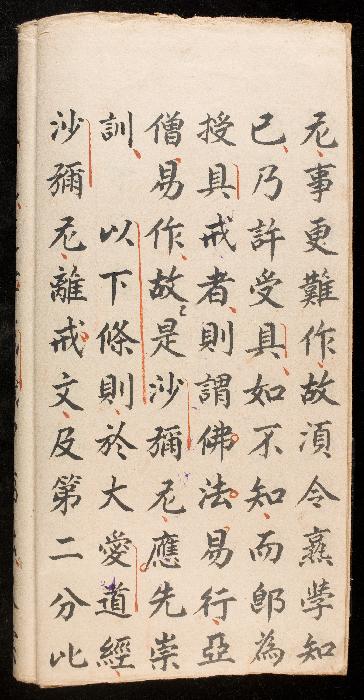 尼事更難作故須令熹學知
已乃許受具如不知而郎為
授具戒者則謂佛法易行亞
僧易作故是沙彌尼應先崇
訓　以下條則於大愛道經
沙彌尼離戒文及第二分比